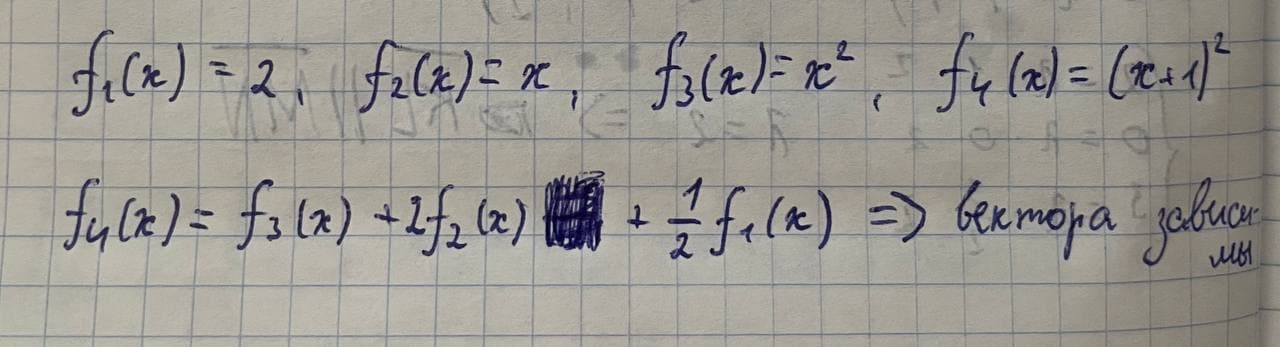 f₁(x) = 2, f₂(x) = x, f₃(x) = x², f₄(x) = (x+1)²
f₄(x) = f₃(x) + 2f₂(x) + 1/2 f₁(x) => вектора зависи-
мы